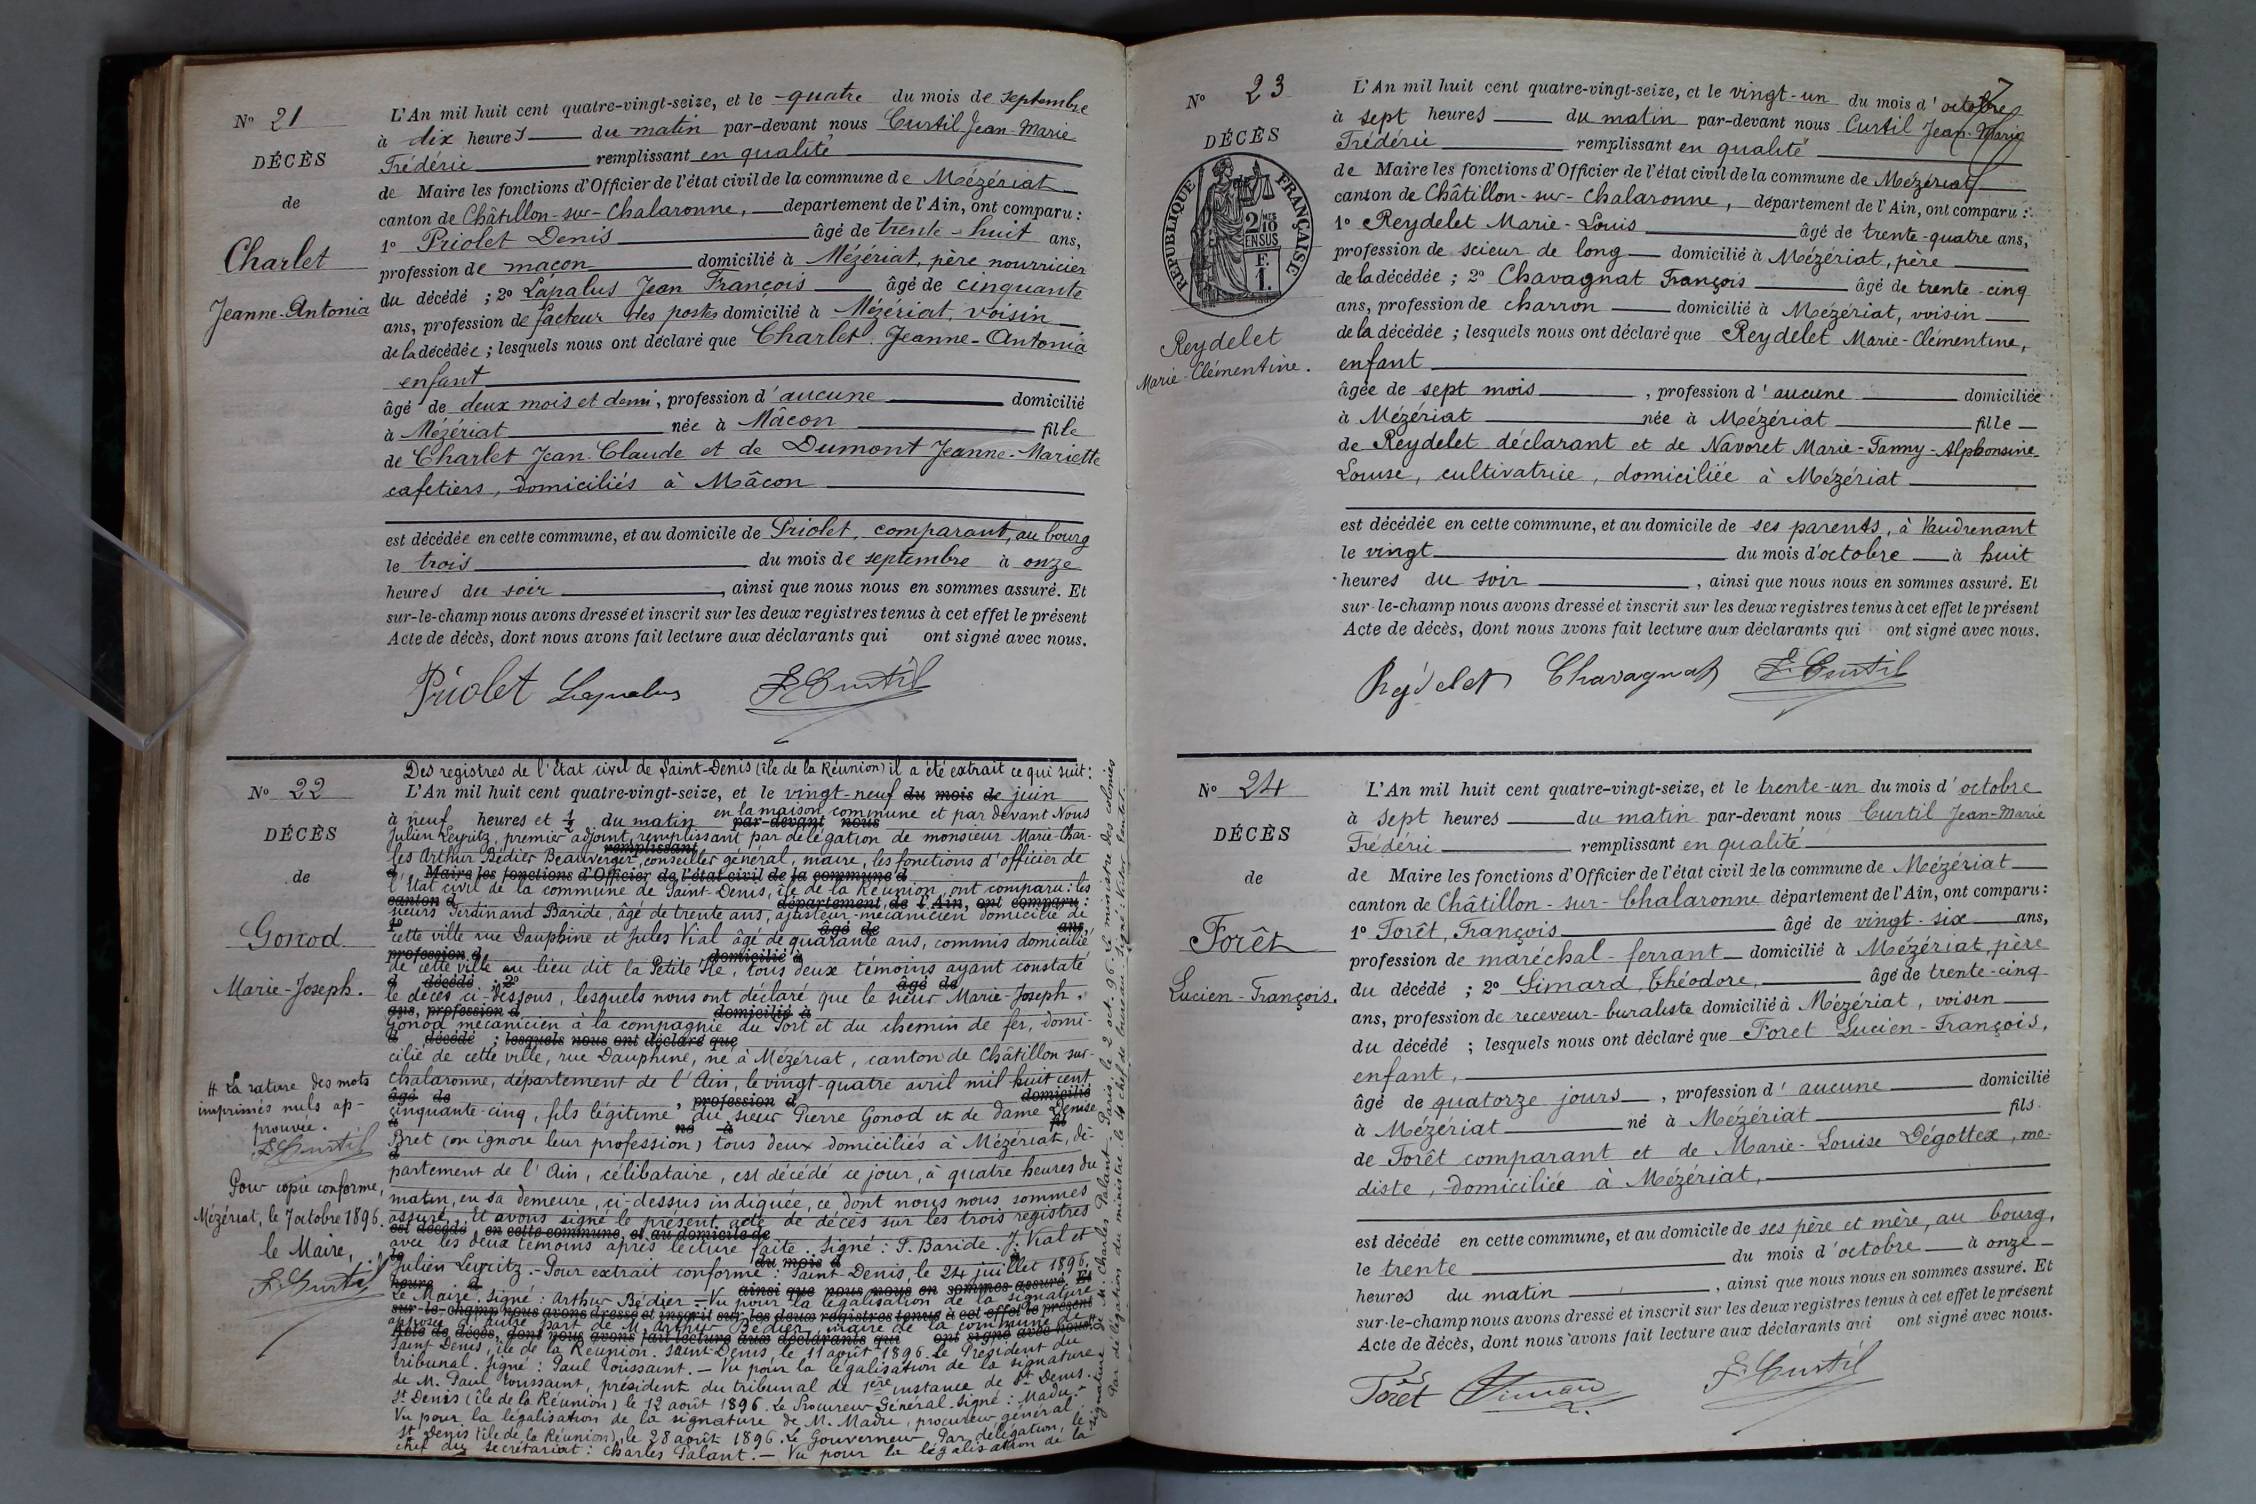 N° 21
DÉCÈS
de
Charlet
Jeanne-Antonia
L'An mil huit cent quatre-vingt-seize, et le quatre du mois de septembre
à dix heures du matin par-devant nous Curtil Jean-Marie
Frédéric remplissant en qualité
de Maire les fonctions d'Officier de l'état civil de la commune de Mézériat
canton de Châtillon-sur-Chalaronne, département de l'Ain, ont comparu :
1° Priolet Denis âgé de trente-huit ans,
profession de maçon domicilié à Mézériat, père nourricier
du décédé ; 2° Lapalus Jean François âgé de cinquante
ans, profession de facteur des postes domicilié à Mézériat, voisin
de la décédée ; lesquels nous ont déclaré que Charlet Jeanne-Antonia
enfant
âgé de deux mois et demi, profession d'aucune domicilié
à Mézériat née à Mâcon fille
de Charlet Jean-Claude et de Dumont Jeanne-Mariette
cafetiers, domiciliés à Mâcon
est décédée en cette commune, et au domicile de Priolet, comparant, au bourg
le trois du mois de septembre à onze
heures du soir, ainsi que nous nous en sommes assuré. Et
sur-le-champ nous avons dressé et inscrit sur les deux registres tenus à cet effet le présent
Acte de décès, dont nous avons fait lecture aux déclarants qui ont signé avec nous.
Priolet Lapalus F. Curtil
N° 22
DÉCÈS
de
Gonod
Marie-Joseph.
# La rature des mots
imprimés nuls ap-
prouvée.
F. Curtil
Pour copie conforme,
Mézériat, le 7 octobre 1896.
le Maire,
F. Curtil
Des registres de l'État civil de Saint-Denis (île de la Réunion) il a été extrait ce qui suit :
L'An mil huit cent quatre-vingt-seize, et le vingt-neuf du mois de juin
à neuf heures et ½ du matin en la maison commune et par devant Nous
par-devant nous
Julien Leyritz, premier adjoint, remplissant par délégation de monsieur Marie-Char-
remplissant
les Arthur Bédier Beauverger, conseiller général, maire, les fonctions d'officier de
d Maire les fonctions d'Officier de l'état civil de la commune d
l'État civil de la commune de Saint-Denis, île de la Réunion, ont comparu : les
canton d département de l'Ain, ont comparu :
sieurs Ferdinand Baride, âgé de trente ans, ajusteur-mécanicien domicilié de
1° âgé de ans,
cette ville rue Dauphine et Jules Vial âgé de quarante ans, commis domicilié
profession d domicilié à
de cette ville au lieu dit la Petite Île, tous deux témoins ayant constaté
d décédé ; 2° âgé de
le décès ci-dessous, lesquels nous ont déclaré que le sieur Marie-Joseph
ans, profession d domicilié à
Gonod mécanicien à la compagnie du Port et du chemin de fer, domi-
d décédé ; lesquels nous ont déclaré que
cilié de cette ville, rue Dauphine, né à Mézériat, canton de Châtillon sur-
chalaronne, département de l'Ain, le vingt-quatre avril mil huit cent
âgé de , profession d domicilié
cinquante-cinq, fils légitime du sieur Pierre Gonod et de dame Denise
à né à fil
Bret (on ignore leur profession) tous deux domiciliés à Mézériat, dé-
d
partement de l'Ain, célibataire, est décédé ce jour, à quatre heures du
matin, en sa demeure, ci-dessus indiquée, ce dont nous nous sommes
assuré. Et avons signé le présent acte de décès sur les trois registres
est décédé en cette commune, et au domicile de
avec les deux témoins après lecture faite. Signé : F. Baride. J. Vial et
le du mois d à
Julien Leyritz. - Pour extrait conforme : Saint-Denis, le 24 juillet 1896.
heure d ainsi que nous nous en sommes assuré. Et
Le Maire. signé : Arthur Bédier = Vu pour la légalisation de la signature
sur-le-champ nous avons dressé et inscrit sur les deux registres tenus à cet effet le présent
apposée d'autre part de M. Arthur Bédier, maire de la commune de
Acte de décès, dont nous avons fait lecture aux déclarants qui ont signé avec nous.
Saint Denis, île de la Réunion. Saint-Denis, le 11 août 1896. Le Président du
tribunal. signé : Paul Toussaint. - Vu pour la légalisation de la signature
de M. Paul Toussaint, président du tribunal de 1ère instance de St Denis.
St Denis (île de la Réunion) le 12 août 1896. Le Procureur Général. signé : Madu. -
Vu pour la légalisation de la signature de M. Madu, procureur général.
St Denis (île de la Réunion), le 28 août 1896. Le Gouverneur. Par délégation, le
chef du secrétariat : Charles Palant. - Vu pour la légalisation de la
signature de M. Charles Palant. Paris, le 2 oct. 96. Le ministre des colonies
Par délégation du ministre, le chef de bureau.
N° 23
DÉCÈS
RÉPUBLIQUE FRANÇAISE
2/10 EN SUS
F.
1.
Reydelet
Marie-Clémentine.
7
L'An mil huit cent quatre-vingt-seize, et le vingt-un du mois d'octobre
à sept heures du matin par-devant nous Curtil Jean-Marie
Frédéric remplissant en qualité
de Maire les fonctions d'Officier de l'état civil de la commune de Mézériat
canton de Châtillon-sur-Chalaronne, département de l'Ain, ont comparu :
1° Reydelet Marie-Louis âgé de trente-quatre ans,
profession de scieur de long domicilié à Mézériat, père
de la décédée ; 2° Chavagnat François âgé de trente-cinq
ans, profession de charron domicilié à Mézériat, voisin
de la décédée ; lesquels nous ont déclaré que Reydelet Marie-Clémentine,
enfant
âgée de sept mois, profession d'aucune domiciliée
à Mézériat née à Mézériat fille
de Reydelet déclarant et de Navoret Marie-Fanny-Alphonsine
Louise, cultivatrice, domiciliée à Mézériat
est décédée en cette commune, et au domicile de ses parents, à Vaudrenant
le vingt du mois d'octobre à huit
heures du soir, ainsi que nous nous en sommes assuré. Et
sur-le-champ nous avons dressé et inscrit sur les deux registres tenus à cet effet le présent
Acte de décès, dont nous avons fait lecture aux déclarants qui ont signé avec nous.
Reydelet Chavagnat F. Curtil
N° 24
DÉCÈS
de
Forêt
Lucien-François.
L'An mil huit cent quatre-vingt-seize, et le trente-un du mois d'octobre
à sept heures du matin par-devant nous Curtil Jean-Marie
Frédéric remplissant en qualité
de Maire les fonctions d'Officier de l'état civil de la commune de Mézériat
canton de Châtillon-sur-Chalaronne département de l'Ain, ont comparu :
1° Forêt, François âgé de vingt-six ans,
profession de maréchal-ferrant domicilié à Mézériat, père
du décédé ; 2° Simard, Théodore, âgé de trente-cinq
ans, profession de receveur-buraliste domicilié à Mézériat, voisin
du décédé ; lesquels nous ont déclaré que Foret Lucien-François,
enfant,
âgé de quatorze jours, profession d'aucune domicilié
à Mézériat né à Mézériat fils
de Forêt comparant et de Marie-Louise Dégottex, mo-
diste, domiciliée à Mézériat,
est décédé en cette commune, et au domicile de ses père et mère, au bourg,
le trente du mois d'octobre à onze
heures du matin, ainsi que nous nous en sommes assuré. Et
sur-le-champ nous avons dressé et inscrit sur les deux registres tenus à cet effet le présent
Acte de décès, dont nous avons fait lecture aux déclarants qui ont signé avec nous.
Foret Simard F. Curtil